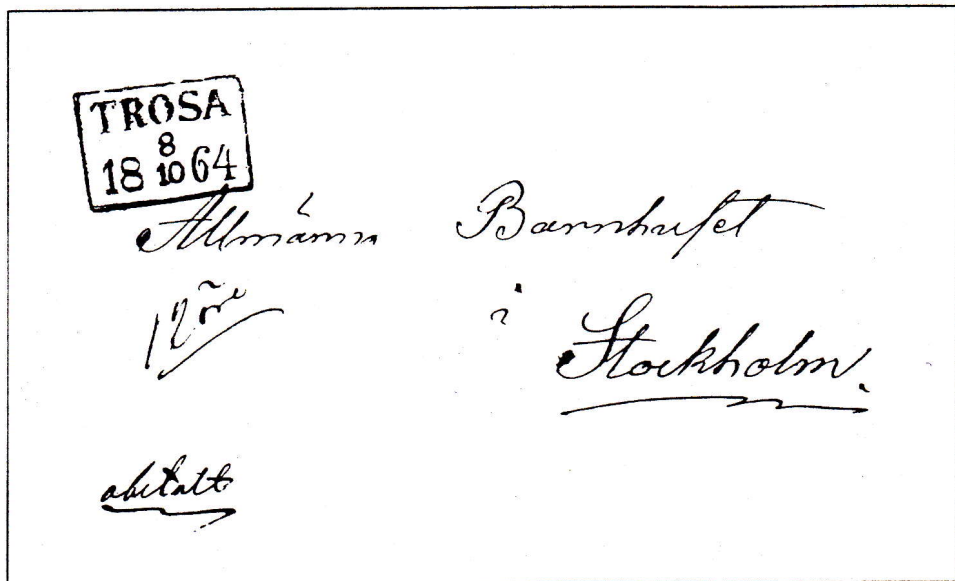 TROSA
8
18 10 64
Allmänna Barnhuset
12 öre i
Stockholm.
obetalt